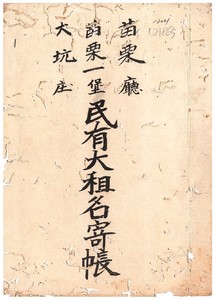 苗栗廳
苗栗一堡民有大租名寄帳
大坑庄